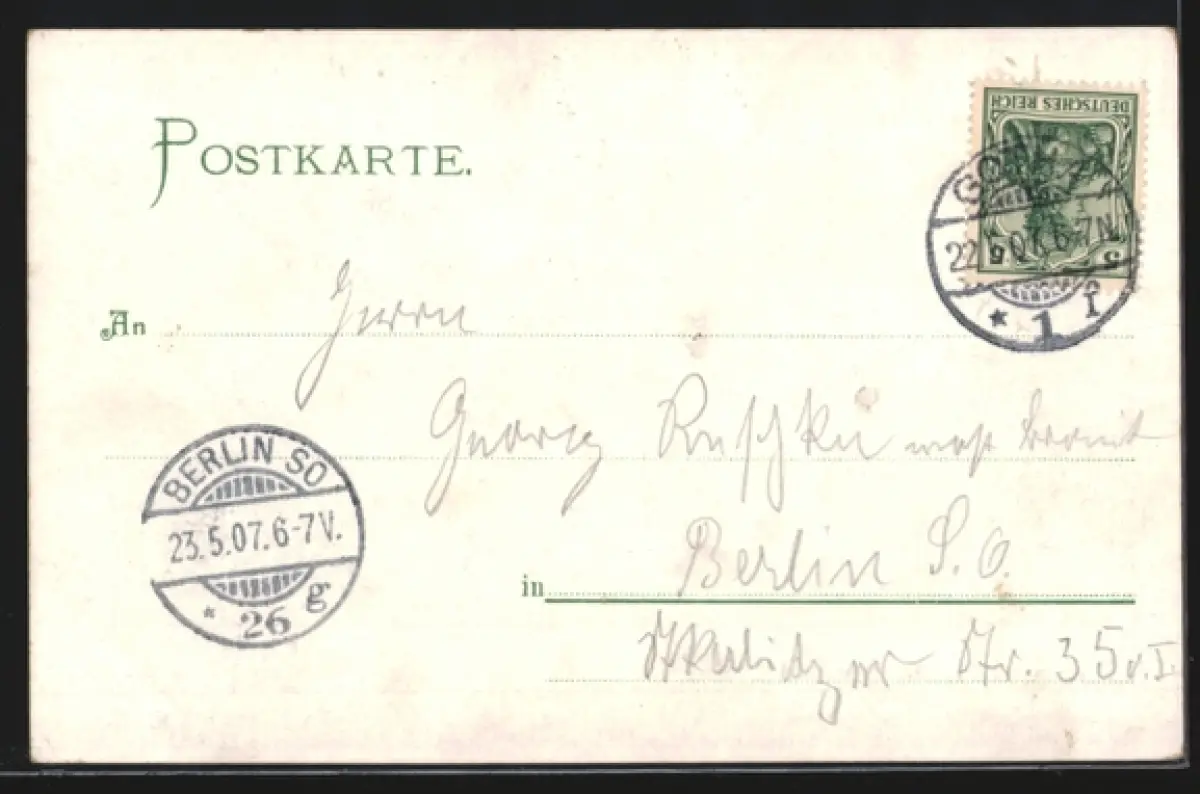 POSTKARTE.
DEUTSCHES REICH
5 5
22. 07. 6-7N.
* 1 I
An Herrn
Georg
BERLIN SO
23.5.07.6-7V.
* 26 g
in Berlin S.O.
Skalitzer Str. 35 v. I.